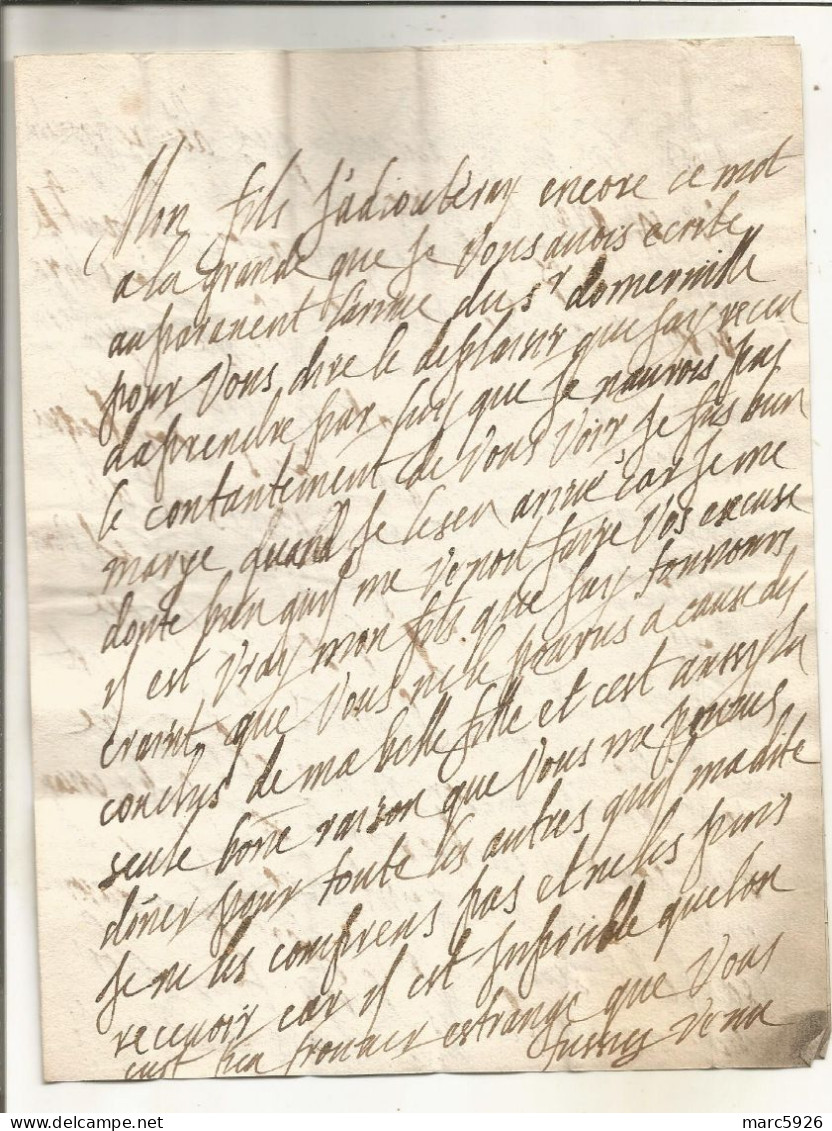 Mon fils Jadiouteray encore ce mot
a la grande que Je vous auois ecrite
auparauent larriue du sr domeruille
pour vous dire le deplaisir que Jay receu
daprendre par luy que Je naurois pas
le contantement de vous voir Je fus bien
marye quand Je le seu arriué car Je me
doute bien quil me venoit faire vos excuse
il est vray mon fils que Jay tousiours
craint que vous ne le pourries a cause des
couches de ma belle fille et cest aussy la
seule bone raison que vous me pouues
doner pour toute les autres quil ma dite
Je ne les comprens pas et ne les puis
receuoir car il est Inposible que lon
eust peu trouuer estrange que vous
fussies venu
marc5926